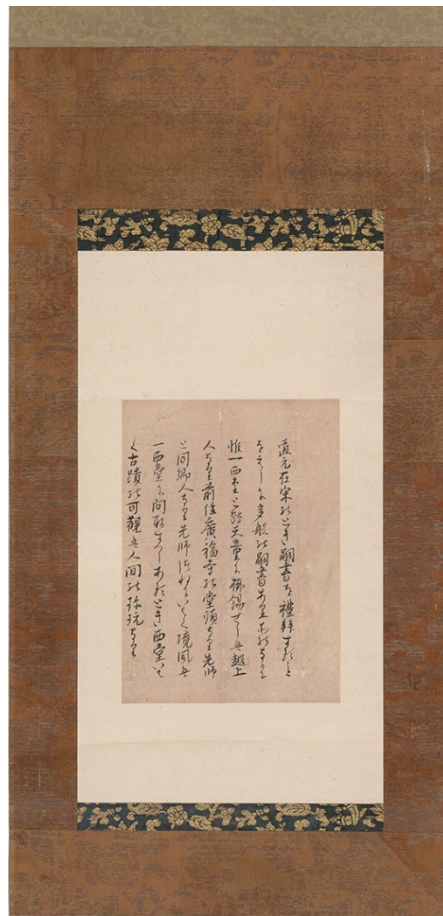 道元在宋のとき嗣書を禮拜すること
をえしに多般の嗣書ありそのなかに
惟一西堂とて天童に掛錫せしは越上
人なり前住廣福寺の堂頭なり先師
と同郷人なり先師つねにいはく境風は
一西堂に問取すへしあるとき西堂いは
く古蹟の可觀は人間の珍玩なり